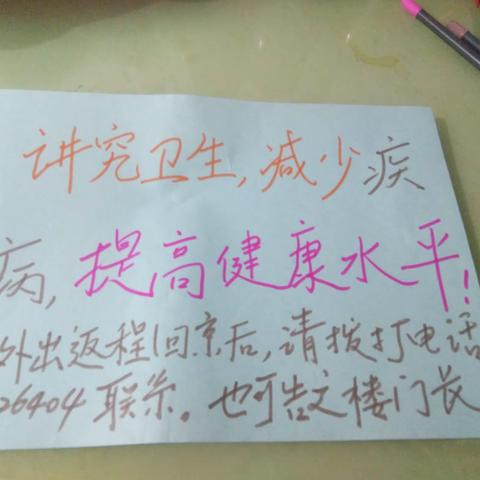 讲究卫生,减少疾
病,提高健康水平!
外出返程回京后,请拨打电话
26404联系。也可告文楼门长